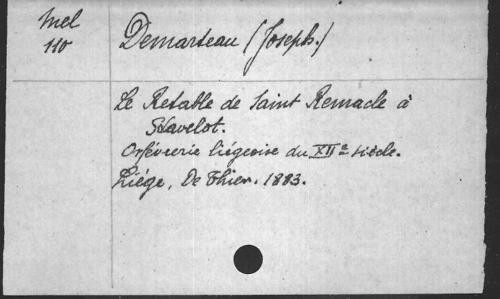 Mel
110
Demarteau (Joseph.)
Le Retable de Saint Remacle à
Stavelot.
Orfévrerie liégeoise du XIIe siècle.
Liége, De Thier. 1883.